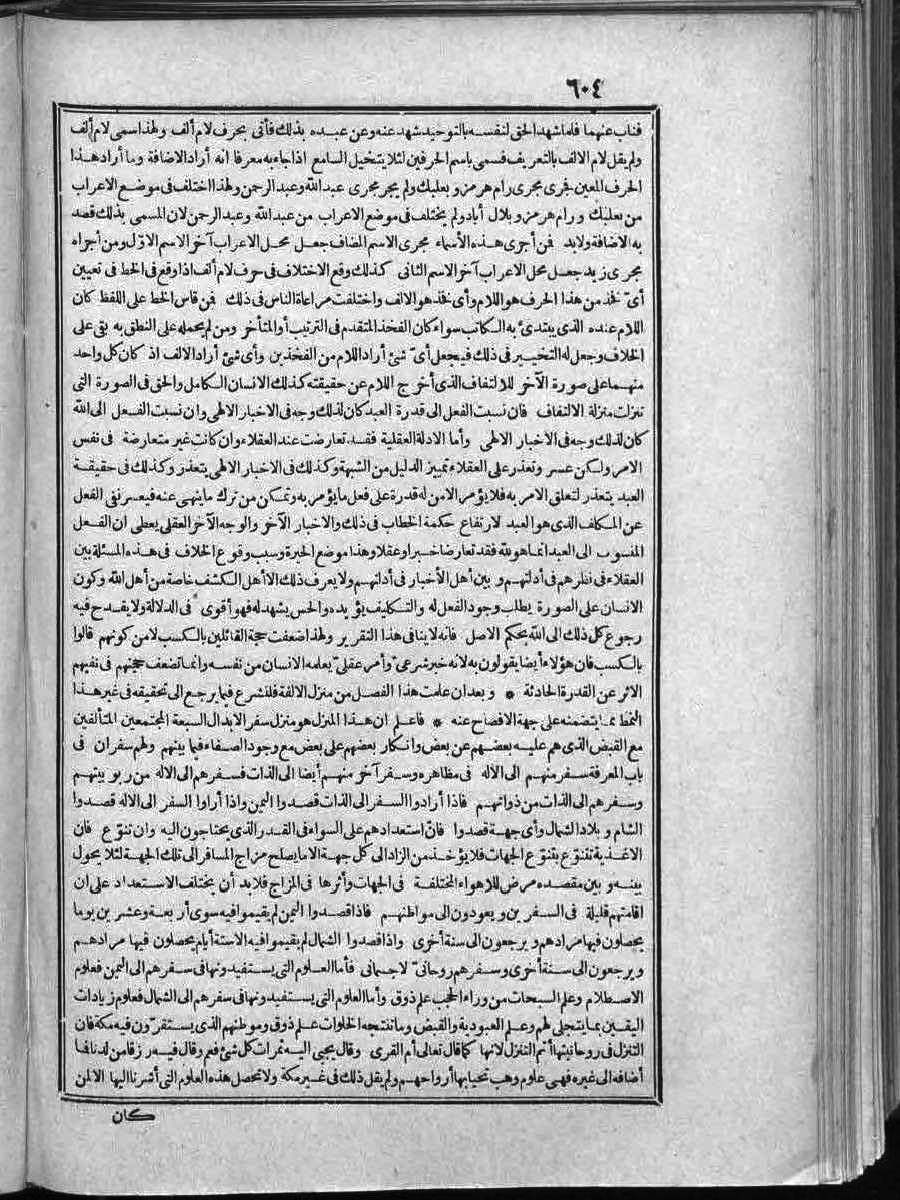 ٦٠٤
فناب عنهما فلما شهد الحق لنفسه بالتوحيد شهد عنه وعن عبده بذلك فأتى بحرف لام ألف ولهذا سمى لام ألف
ولم يقل لام الالف بالتعريف فسمى باسم الحرفين لئلا يتخيل السامع اذا جاء به معرفا انه أراد الاضافة وما أراد هذا
الحرف المعين فجرى مجرى رام هرمز وبعلبك ولم يجر مجرى عبد الله وعبد الرحمن ولهذا اختلف فى موضع الاعراب
من بعلبك ورام هرمز وبلال أباد ولم يختلف فى موضع الاعراب من عبد الله وعبد الرحمن لان المسمى بذلك قصد
به الاضافة ولابد فن أجرى هذه الأسماء مجرى الاسم المضاف جعل محل الاعراب آخر الاسم الاوّل ومن أجراه
مجرى زيد جعل محل الاعراب آخر الاسم الثانى كذلك وقع الاختلاف فى حرف لام ألف اذا وقع فى الخط فى تعيين
أىّ نفذ من هذا الحرف هو اللام وأى نفذ هو الالف واختلفت مراعاة الناس فى ذلك فن قاس الخط على اللفظ كان
اللام عنده الذى يبتدئ به الكاتب سواء كان الفخذ المتقدم فى الترتيب أو المتأخر ومن لم يحمله على النطق به بقى على
الخلاف وجعل له التخيير فى ذلك فيجعل أىّ شئ أراد اللام من الفخذين وأى شئ أراد الالف اذ كان كل واحد
منهما على صورة الآخر للالتفاف الذى أخرج اللام عن حقيقته كذلك الانسان الكامل والحق فى الصورة التى
تنزلت منزلة الالتفاف فان نسبت الفعل الى قدرة العبد كان لذلك وجه فى الاخبار الالهى وان نسبت الفعل الى الله
كان لذلك وجه فى الاخبار الالهى وأما الادلة العقلية فقد تعارضت عند العقلاء وان كانت غير متعارضة فى نفس
الامر ولكن عسر وتعذر على العقلاء تمييز الدليل من الشبهة وكذلك فى الاخبار الالهى يتعذر وكذلك فى حقيقة
العبد يتعذر لتعلق الامر به فلا يؤمر الامن له قدرة على فعل ما يؤمر به وتمكن من ترك ما ينهى عنه فيعسر نفى الفعل
عن المكلف الذى هو العبد لارتفاع حكمة الخطاب فى ذلك والاخبار الآخر والوجه الآخر العقلى يعطى ان الفعل
المنسوب الى العبد انما هو لله فقد تعارضا خبرا وعقلا وهذا موضع الحيرة وسبب وقوع الخلاف فى هذه المسئلة بين
العقلاء فى نظرهم فى أدلتهم وبين أهل الأخبار فى أدلتهم ولا يعرف ذلك الا أهل الكشف خاصة من أهل الله وكون
الانسان على الصورة يطلب وجود الفعل له والتكليف يؤيده والحس يشهد له فهو أقوى فى الدلالة ولا يقدح فيه
رجوع كل ذلك الى الله بحكم الاصل فانه لا ينافى هذا التقرير ولهذا ضعفت حجة القائلين بالكسب لا من كونهم قالوا
بالكسب فان هؤلاء أيضا يقولون به لانه خبر شرعىّ وأمر عقلىّ يعلمه الانسان من نفسه وانما تضعف حجتهم فى نفيهم
الاثر عن القدرة الحادثة * وبعد ان علمت هذا الفصل من منزل الالفة فلنشرع فيما يرجع الى تحقيقه فى غير هذا
النمط مما يتضمنه على جهة الافصاح عنه * فاعلم ان هذا المنزل هو منزل سفر الابدال السبعة المجتمعين المتألفين
مع القبض الذى هم عليه بعضهم عن بعض وانكار بعضهم على بعض مع وجود الصفاء فيما بينهم ولهم سفران فى
باب المعرفة سفر منهم الى الاله فى مظاهره وسفر آخر منهم أيضا الى الذات فسفرهم الى الاله من ربوبيتهم
وسفرهم الى الذات من ذواتهم فاذا أرادوا السفر الى الذات قصدوا اليمن واذا أراوا السفر الى الاله قصدوا
الشام وبلاد الشمال وأى جهة قصدوا فانّ استعدادهم على السواء فى القدر الذى يحتاجون اليه وان تنوّع فان
الاغذية تتنوّع بتنوّع الجهات فلا يؤخذ من الزاد الى كل جهة الا ما يصلح مزاج المسافر الى تلك الجهة لئلا يحول
بينه وبين مقصده مرض للاهواء المختلفة فى الجهات وأثرها فى المزاج فلابد أن يختلف الاستعداد على ان
اقامتهم قليلة فى السفرين ويعودون الى مواطنهم فاذا قصدوا اليمن لم يقيموا فيه سوى أربعة وعشرين يوما
يحصلون فيها مرادهم ويرجعون الى سنة أخرى واذا قصدوا الشمال لم يقيموا فيه الاستة أيام يحصلون فيها مرادهم
ويرجعون الى سنة أخرى وسفرهم روحانىّ لا جسمانى فأما العلوم التى يستفيدونها فى سفرهم الى اليمن فعلوم
الاصطلام وعلم السبحات من وراء الحجب علم ذوق وأما العلوم التى يستفيدونها فى سفرهم الى الشمال فعلوم زيادات
اليقين بما يتجلى لهم وعلم العبودية والقبض وما تنتجه الخلوات علم ذوق وموطنهم الذى يستقرّون فيه مكة فان
التنزل فى روحانيتها أتم التنزل لانها كما قال تعالى أم القرى وقال يجبى اليه ثمرات كل شئ فعم وقال فيه رزقا من لدنا فا
أضافه الى غيره فهى علوم وهب تحيا بها أرواحهم ولم يقل ذلك فى غير مكة ولا تحصل هذه العلوم التى أشرنا اليها الا لمن
كان